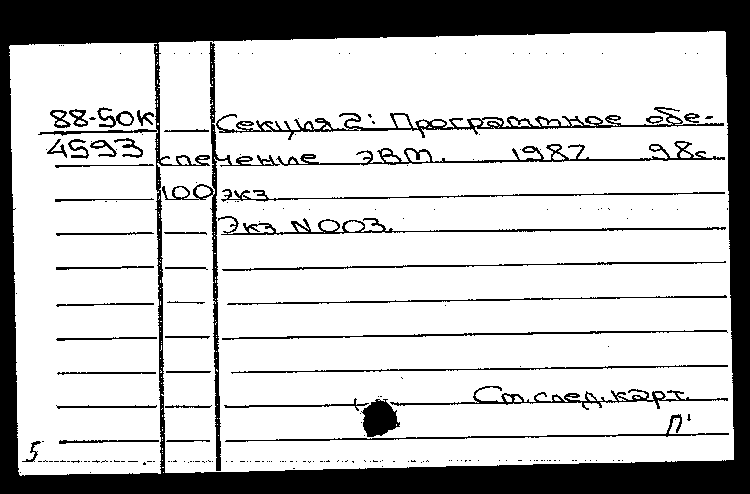 88-50К Секция 2: Программное обе-
4593 спечение ЭВМ. 1987 98с.
100 экз
Экз N003.
См. след. карт.
П'
5